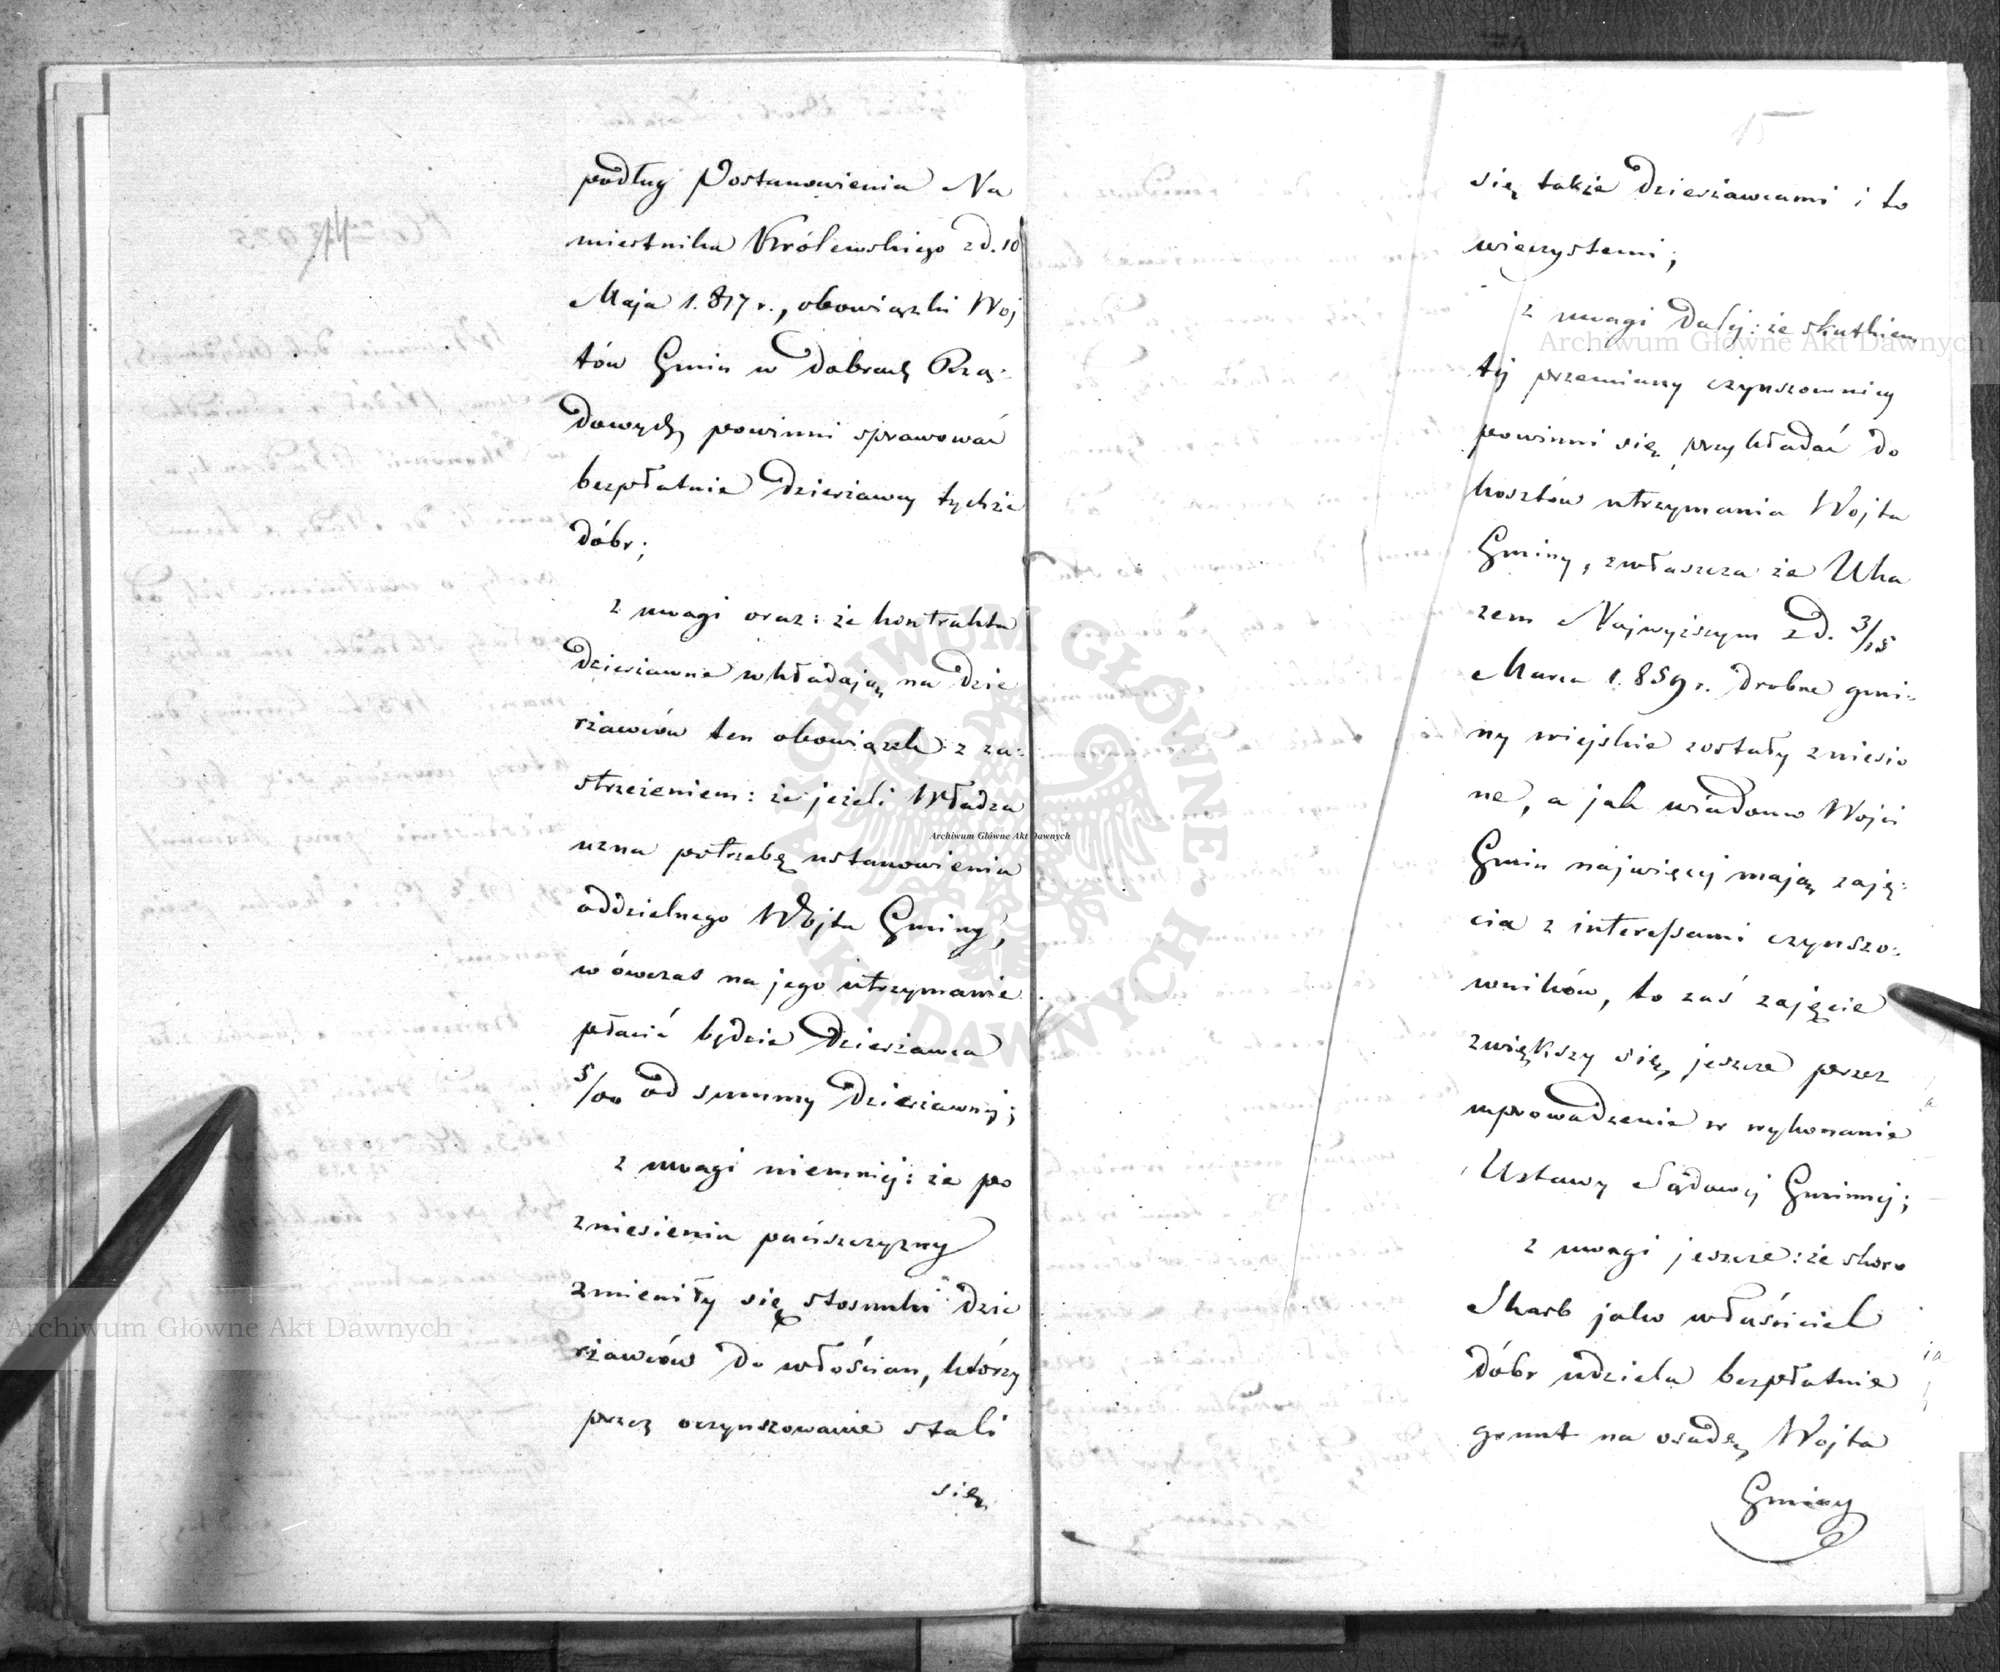 podług Postanowienia Na
miestnika Królewskiego z d. 10
Maja 1.817 r., obowiązki Woj
tów Gmin w dobrach Rzą-
dowych, powinni sprawować
bezpłatnie dzierżawcy tychże
dóbr;
z uwagi oraz: że kontrakta
dzierżawne wkładają na dzie
rżawców ten obowiązek z za-
strzeżeniem: że jeżeli Władza
uzna potrzebę ustanowienia
oddzielnego Wójta Gminy,
wówczas na jego utrzymanie
płacić będzie dzierżawca
5/00 od summy dzierżawnej;
z uwagi niemniej: że po
zniesieniu pańszczyzny
zmieniły się stosunki dzie
rżawców do włościan, którzy
przez oczynszowanie stali
się
15
się także dzierżawcami i to
wieczystemi;
z uwagi dalej: że skutkiem
tej przemiany czynszownicy
powinni się przykładać do
kosztów utrzymania Wojta
Gminy, zwłaszcza że Uka
zem Najwyższym z d. 3/15
Marca 1.859 r. drobne gmi-
ny wiejskie zostały zniesio
ne, a jak wiadomo Wojci
Gmin najwięcej mają zaję-
cia z interessami czynszo-
wników, to zaś zajęcie
zwiększy się jeszcze przez
wprowadzenie w wykonanie
Ustawy Sądowej Gminnej;
z uwagi jeszcze: że skoro
Skarb jako właściciel
dóbr udziela bezpłatnie
grunt na osadę Wojta
Gminy
Archiwum Główne Akt Dawnych
Archiwum Główne Akt Dawnych
Archiwum Główne Akt Dawnych
ARCHIWUM GŁÓWNE AKT DAWNYCH